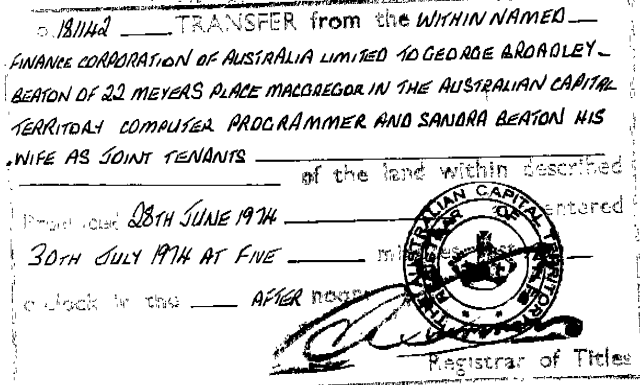 o. 181142 TRANSFER from the WITHIN NAMED
FINANCE CORPORATION OF AUSTRALIA LIMITED TO GEORGE BROADLEY
BEATON OF 22 MEYERS PLACE MACGREGOR IN THE AUSTRALIAN CAPITAL
TERRITORY COMPUTER PROGRAMMER AND SANDRA BEATON HIS
WIFE AS JOINT TENANTS
of the land within described
28TH JUNE 1974 entered
30TH JULY 1974 AT FIVE
o'clock in the AFTER noon
THE AUSTRALIAN CAPITAL TERRITORY
REGISTRAR OF TITLES
Registrar of Titles